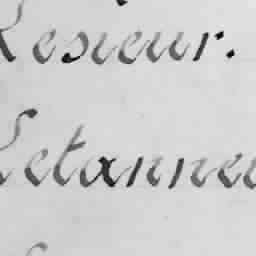 Lesieur.
Letanneu